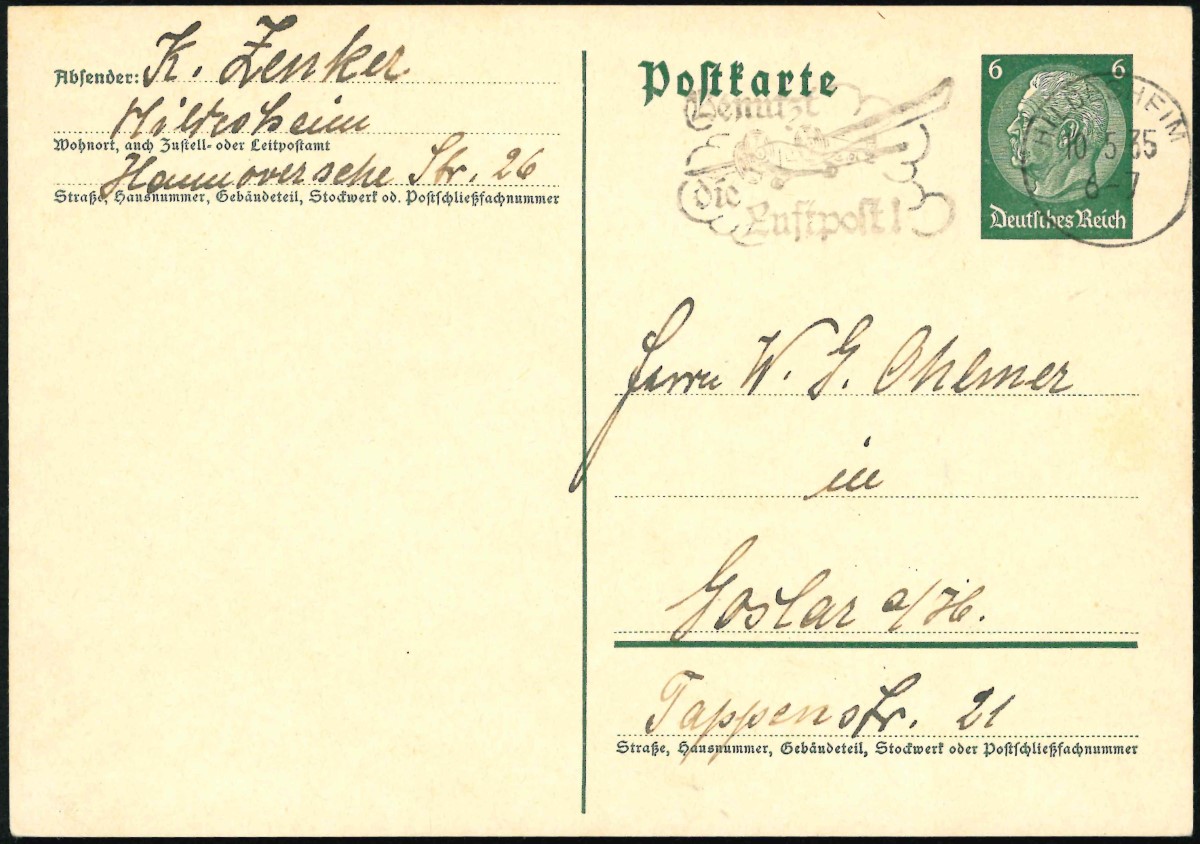 Absender: K. Zenker
Hildesheim
Wohnort, auch Zustell- oder Leitpostamt
Hannoversche Str. 26
Straße, Hausnummer, Gebäudeteil, Stockwerk od. Postschließfachnummer
Postkarte
Benutzt
die
Luftpost!
6 6
Deutsches Reich
HILDESHEIM
10.5.35
6-7
Herrn W. G. Ohlmer
in
Goslar a/H.
Tappenstr. 21
Straße, Hausnummer, Gebäudeteil, Stockwerk oder Postschließfachnummer